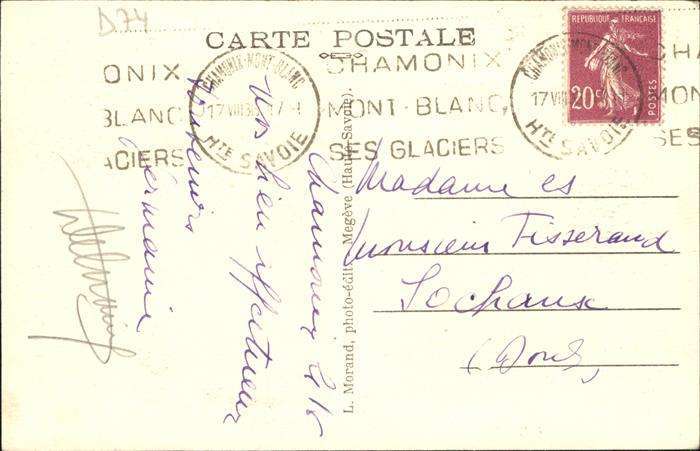 D74
CARTE POSTALE
ONIX
BLANC
ACIERS
CHAMONIX-MONT-BLANC
17 VIII 3
17-H
HTE SAVOIE
CHAMONIX
MONT-BLANC,
SES GLACIERS
CHAMONIX-MONT-BLANC
17 VIII
HTE SAVOIE
REPUBLIQUE FRANÇAISE
20c
POSTES
CHA
MON
SES
Chamonix le 16
Nos bien affectueux
souvenirs
Germaine
L. Morand, photo-édit., Megève (Haute-Savoie).
Madame es
monsieur Tisserand
Sochaux
(Doubs)